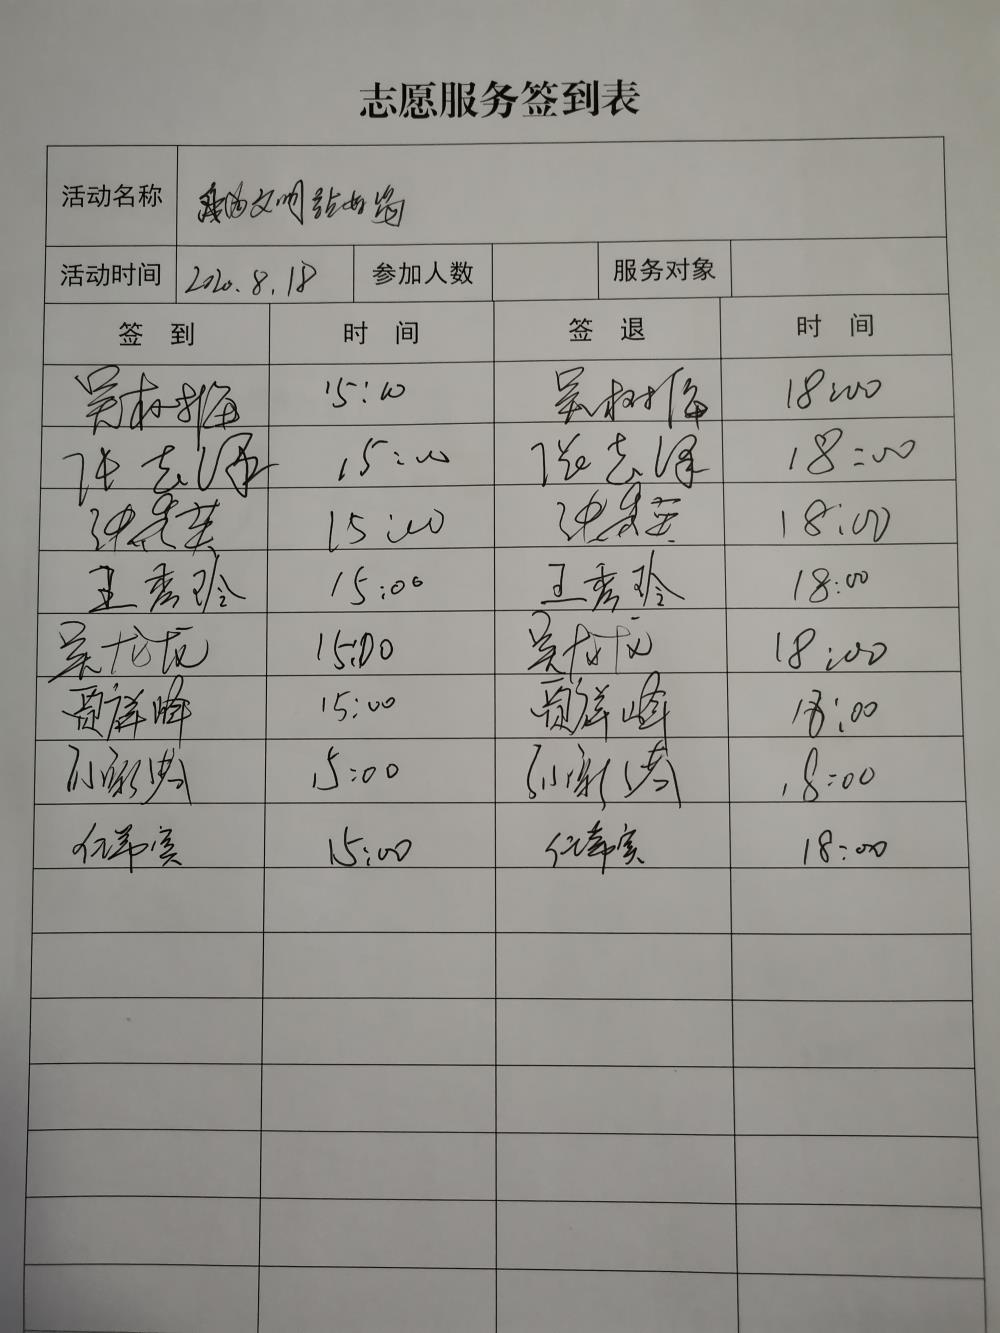 志愿服务签到表
活动名称 文明
活动时间 2020.8.18 参加人数 服务对象
签 到 时 间 签 退 时 间
吴树梅 15:00 吴树梅 18:00
张志泽 15:00 张志泽 18:00
15:00 18:00
王秀玲 15:00 王秀玲 18:00
吴龙龙 15:00 吴龙龙 18:00
贾祥峰 15:00 贾祥峰 18:00
孙 15:00 孙 18:00
任 15:00 任 18:00